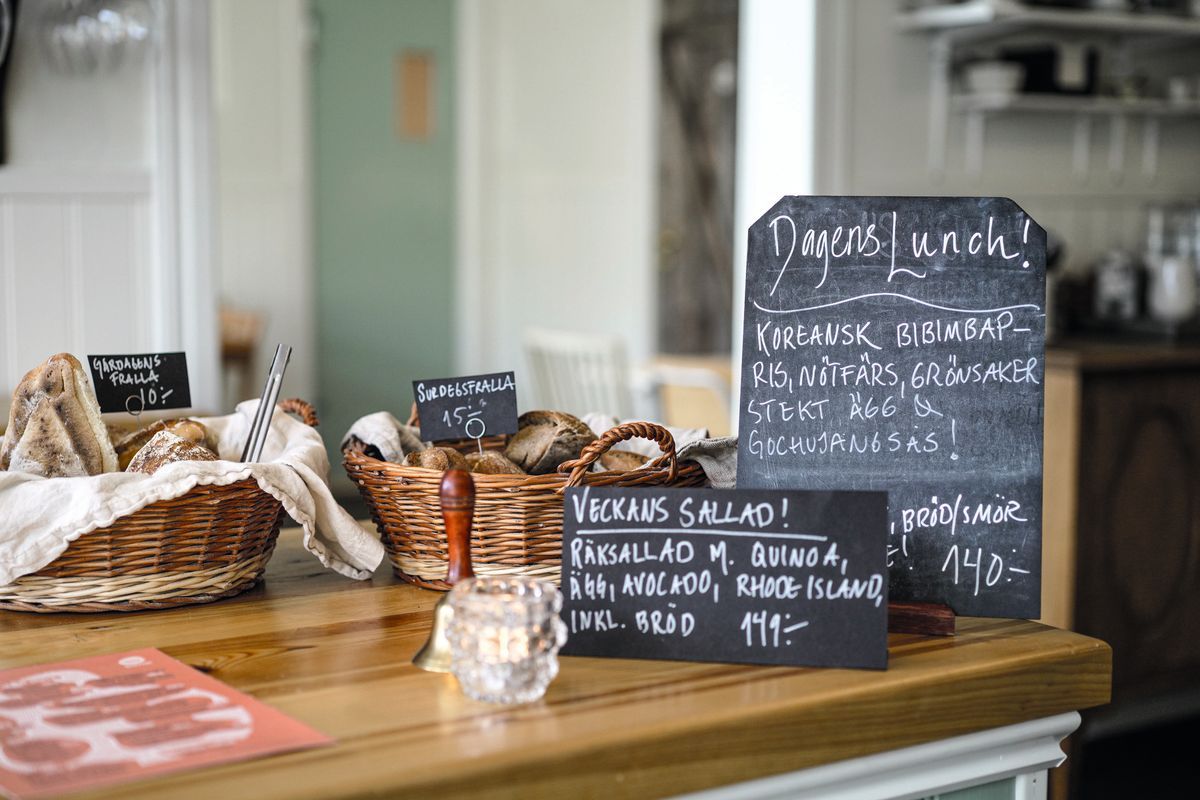 GÅRDAGENS
FRALLA
10:-
SURDEGSFRALLA
15:-
Dagens Lunch!
KOREANSK BIBIMBAP-
RIS, NÖTFÄRS, GRÖNSAKER
STEKT ÄGG &
GOCHUJANGSÅS!
, BRÖD/SMÖR
! 140:-
VECKANS SALLAD!
RÄKSALLAD M. QUINOA,
ÄGG, AVOCADO, RHODE ISLAND,
INKL. BRÖD 149:-